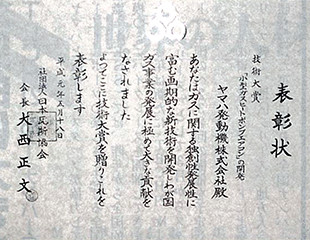 表彰状
技術大賞
「小型ガスヒートポンプエアコン」の開発
ヤマハ発動機株式会社殿
あなたはガスに関する独創性発展性に
富む画期的な新技術を開発しわが国
ガス事業の発展に極めて大きな貢献を
なされました
よってここに技術大賞を贈りこれを
表彰します
平成元年五月十八日
社団法人日本瓦斯協会
会長 大西正文